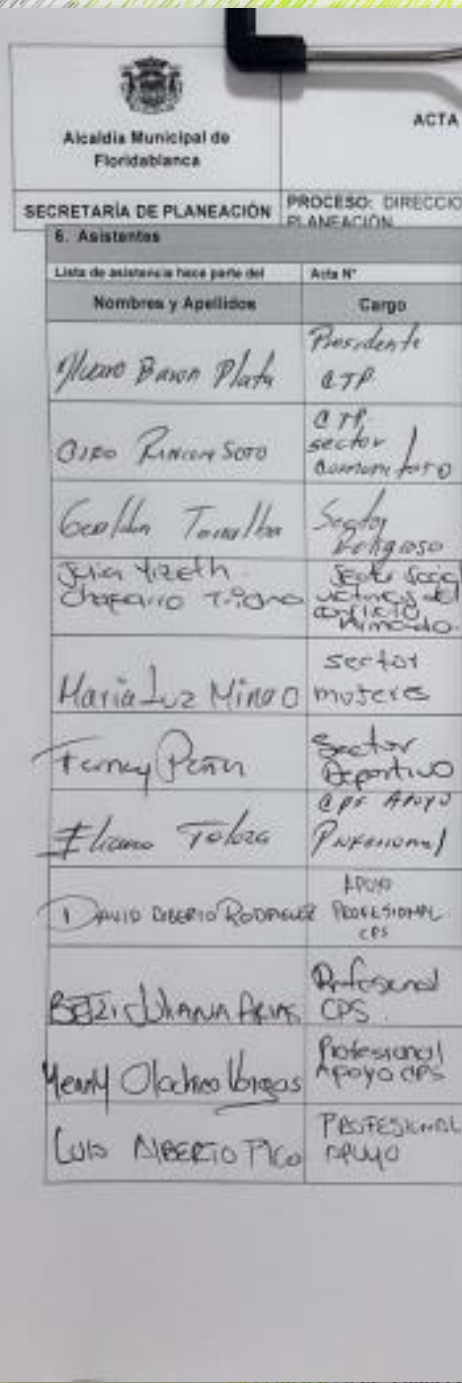 Alcaldía Municipal de
Floridablanca
ACTA
SECRETARÍA DE PLANEACIÓN
PROCESO: DIRECCIO
PLANEACIÓN
6. Asistentes
Lista de asistencia hace parte del
Acta N°
Nombres y Apellidos
Cargo
Baron Plata
Presidente
CTP
Ciro Rincon Soto
CTP
sector
comunitario
Sector
Religioso
Julia Yizeth
Chaparro Triana
Sector Social
victimas del
conflicto
Armado.
Maria Luz Mineo
sector
mujeres
Ferney Peña
Sector
Deportivo
Eliana Toloza
CPS Apoyo
Profesional
DAVID DIBERTO RODRIGUEZ
APOYO
PROFESIONAL
CPS
JULIANA ARIAS
Profesional
CPS
Vargas
Profesional
Apoyo CPS
LUIS ALBERTO PICO
PROFESIONAL
APOYO